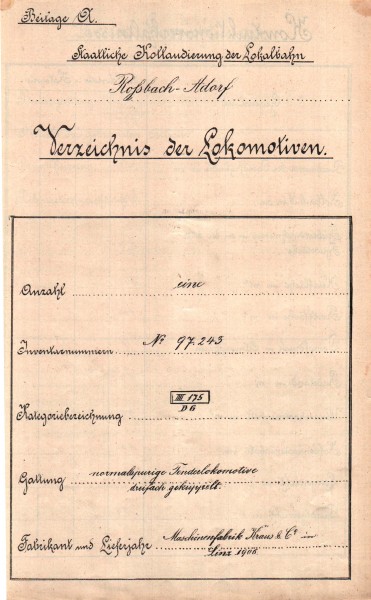 Beilage A.
Staatliche Kollaudierung der Lokalbahn
Roßbach-Adorf
Verzeichnis der Lokomotiven.
Anzahl eine
Inventarnummern No 97.243
Kategoriebezeichnung III 175
D 6
Gattung normalspurige Tenderlokomotive
dreifach gekuppelt.
Fabrikant und Lieferjahr Maschinenfabrik Kraus & Co in
Linz 1906.